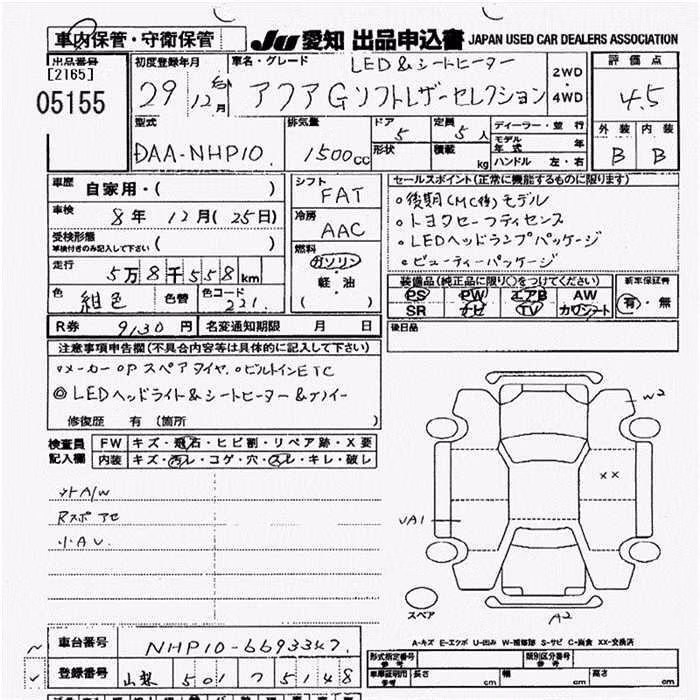 車内保管・守衛保管
JU 愛知 出品申込書 JAPAN USED CAR DEALERS ASSOCIATION
出品番号
[2165]
05155
初度登録年月
29 12月
車名・グレード
LED&シートヒーター
アクアGソフトレザーセレクション
2WD・4WD
評価点
4.5
型式
DAA-NHP10
排気量
1500cc
ドア 5
形状
定員 5人
積載 kg
ディーラー・並行
モデル年式 年
ハンドル 左・右
外装 内装
B B
車歴 自家用・( )
車検 8年 12月(25日)
受検形態
車検付きのみ記入して下さい ( )
走行 5万8千558km
色 紺色 色替 色コード 221
R券 9130円 名変通知期限 月 日
シフト
FAT
冷房
AAC
燃料
ガソリン
・
軽・油
( )
セールスポイント(正常に機能するものに限ります)
○後期(MC後)モデル
○トヨタセーフティセンス
○LEDヘッドランプパッケージ
○ビューティーパッケージ
装備品(純正品に限り○をつけてください)
PS PW エアB AW
SR ナビ TV カワシート
新車保証書
有・無
後日品
注意事項申告欄(不具合内容等は具体的に記入して下さい)
・メーカーOPスペアタイヤ、○ビルトインETC
◎LEDヘッドライト&シートヒーター&
修復歴 有(箇所 )
検査員記入欄
FW キズ・飛石・ヒビ割・リペア跡・X要
内装 キズ・汚レ・コゲ・穴・スレ・キレ・破レ
外A/W
Rスポ アセ
小A U.
W2
XX
UA1
スペア
A2
A-キズ E-エクボ U-凹み W-補修跡 S-サビ C-腐食 XX-交換済
車台番号 NHP10-6693347
登録番号 山梨 501 つ 5148
形式指定番号 参考
類別区分番号 参考
車庫証明用 参考 長さ cm 幅 cm 高さ cm